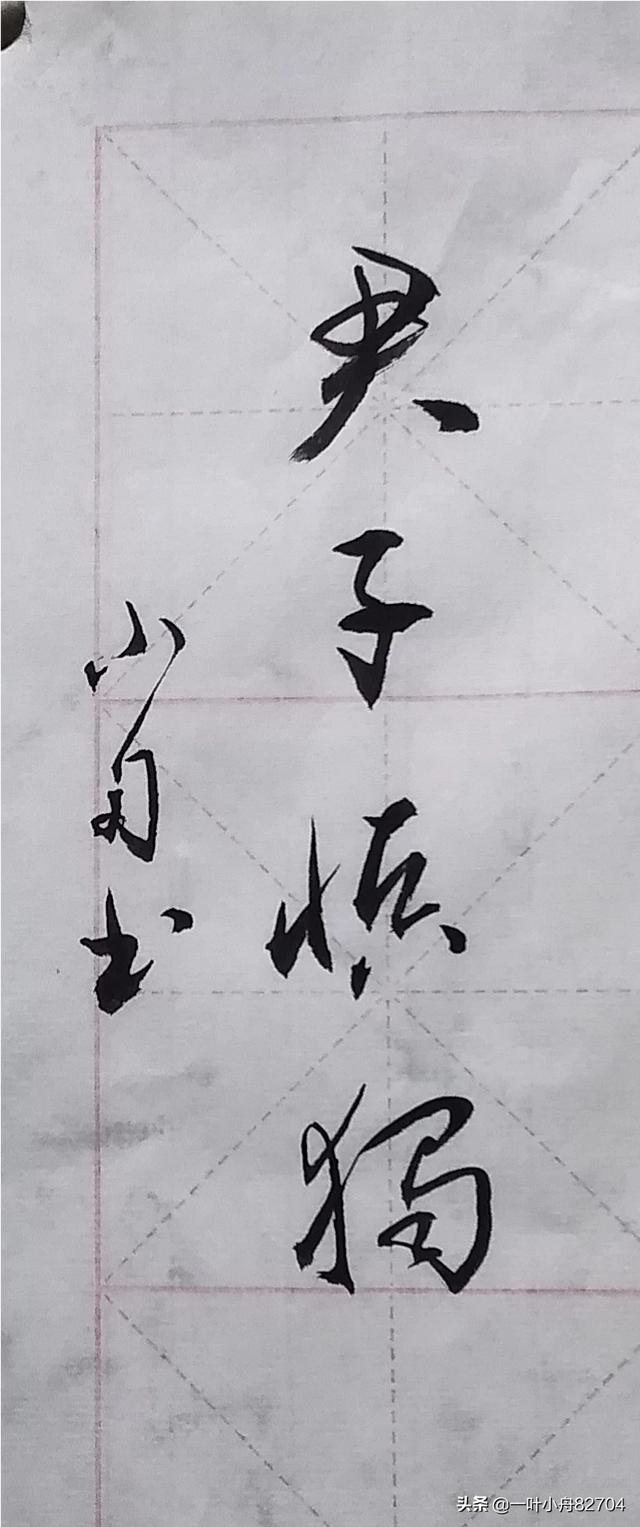 君子慎獨
小舟书
头条 @一叶小舟82704